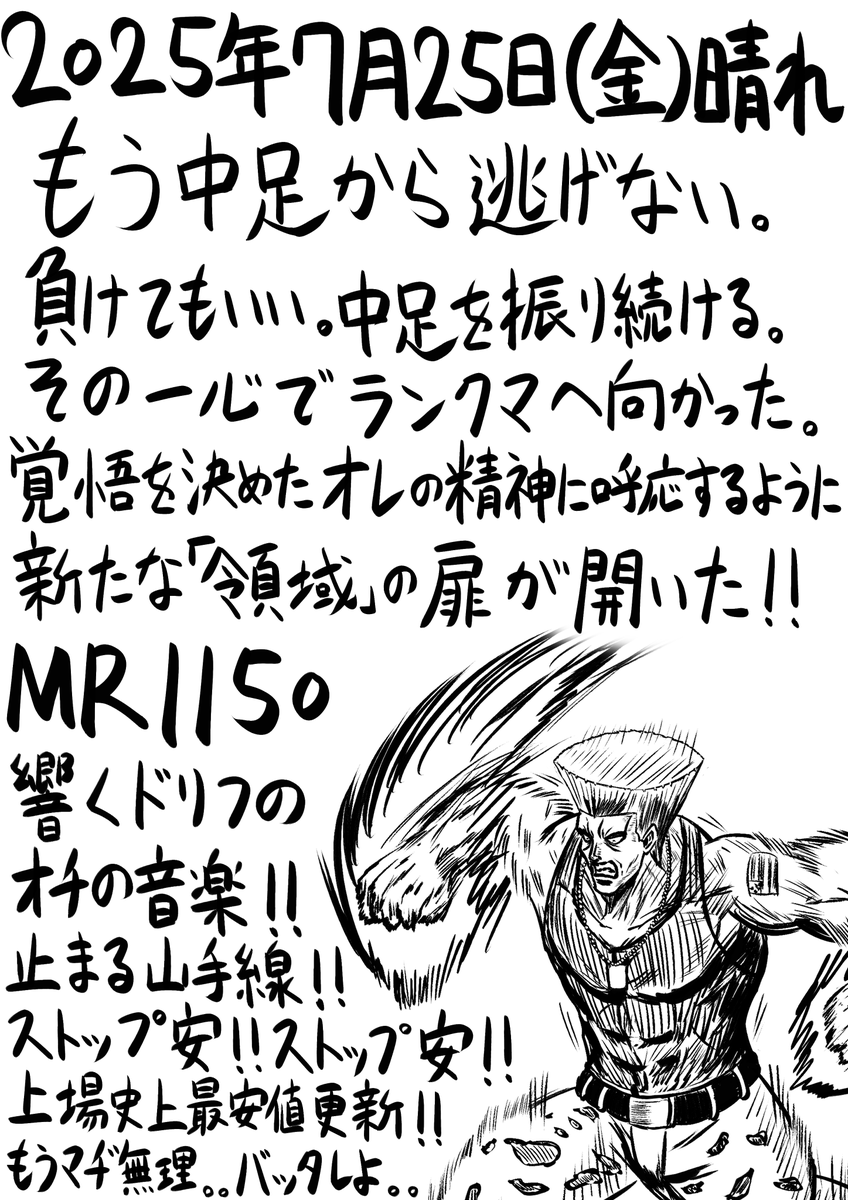 2025年7月25日(金)晴れ
もう中足から逃げない。
負けてもいい。中足を振り続ける。
その一心でランクマへ向かった。
覚悟を決めたオレの精神に呼応するように
新たな「領域」の扉が開いた!!
MR1150
響くドリフの
オチの音楽!!
止まる山手線!!
ストップ安!!ストップ安!!
上場史上最安値更新!!
もうマヂ無理。。バッタしよ。。